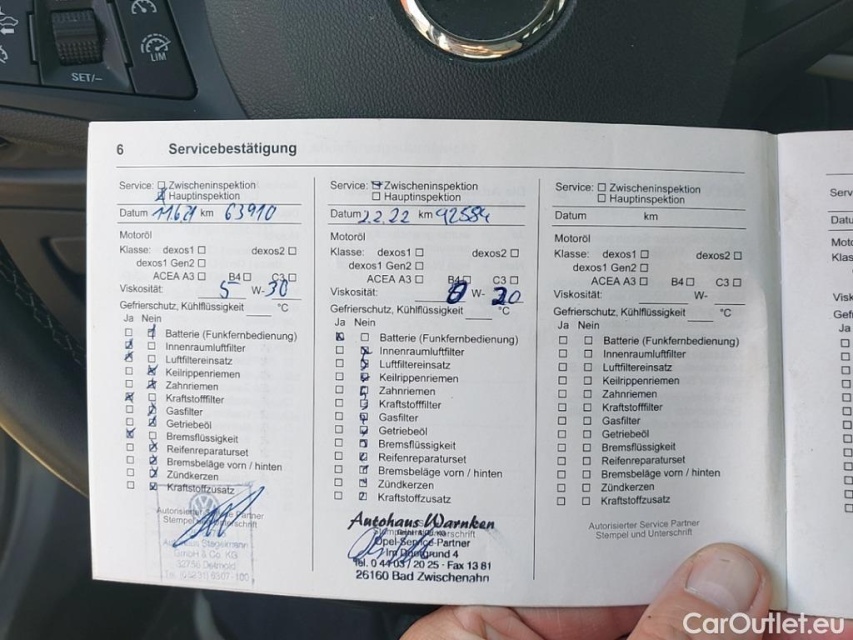 LIM
SET/–
6 Servicebestätigung
Service: Zwischeninspektion
Hauptinspektion
Datum 11.6.21 km 63910
Motoröl
Klasse: dexos1 dexos2
dexos1 Gen2
ACEA A3 B4 C3
Viskosität: 5 W- 30
Gefrierschutz, Kühlflüssigkeit °C
Ja Nein
Batterie (Funkfernbedienung)
Innenraumluftfilter
Luftfiltereinsatz
Keilrippenriemen
Zahnriemen
Kraftstofffilter
Gasfilter
Getriebeöl
Bremsflüssigkeit
Reifenreparaturset
Bremsbeläge vorn / hinten
Zündkerzen
Kraftstoffzusatz
Autorisierter Service Partner
Stempel und Unterschrift
GmbH & Co. KG
32756 Detmold
Service: Zwischeninspektion
Hauptinspektion
Datum 2.2.22 km 92584
Motoröl
Klasse: dexos1 dexos2
dexos1 Gen2
ACEA A3 B4 C3
Viskosität: 0 W- 20
Gefrierschutz, Kühlflüssigkeit °C
Ja Nein
Batterie (Funkfernbedienung)
Innenraumluftfilter
Luftfiltereinsatz
Keilrippenriemen
Zahnriemen
Kraftstofffilter
Gasfilter
Getriebeöl
Bremsflüssigkeit
Reifenreparaturset
Bremsbeläge vorn / hinten
Zündkerzen
Kraftstoffzusatz
Autohaus Warnken
Opel-Service-Partner
Tel. 0 44 03 / 20 25 · Fax 13 81
26160 Bad Zwischenahn
Service: Zwischeninspektion
Hauptinspektion
Datum km
Motoröl
Klasse: dexos1 dexos2
dexos1 Gen2
ACEA A3 B4 C3
Viskosität: W-
Gefrierschutz, Kühlflüssigkeit °C
Ja Nein
Batterie (Funkfernbedienung)
Innenraumluftfilter
Luftfiltereinsatz
Keilrippenriemen
Zahnriemen
Kraftstofffilter
Gasfilter
Getriebeöl
Bremsflüssigkeit
Reifenreparaturset
Bremsbeläge vorn / hinten
Zündkerzen
Kraftstoffzusatz
Autorisierter Service Partner
Stempel und Unterschrift
CarOutlet.eu